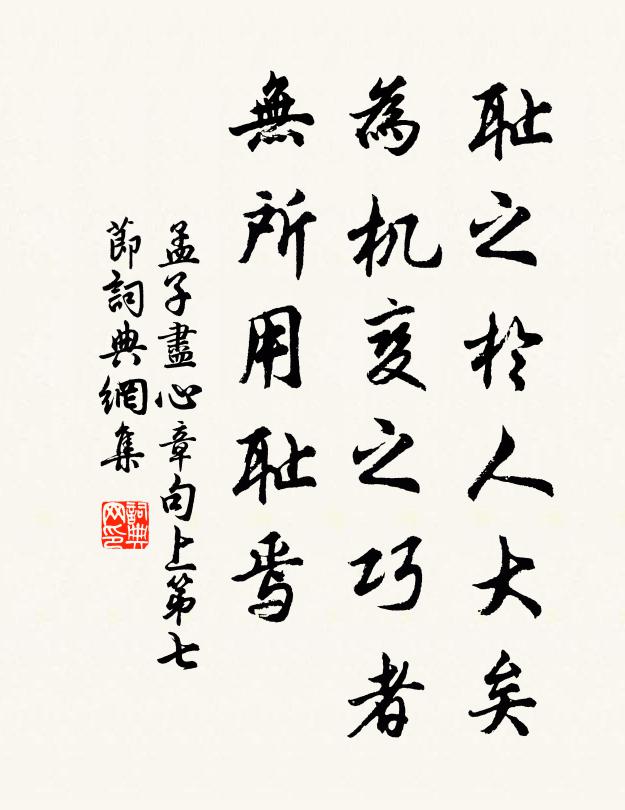 恥之於人大矣
為机变之巧者
無所用恥焉
孟子盡心章句上第七
節詞典網集
詞典网印